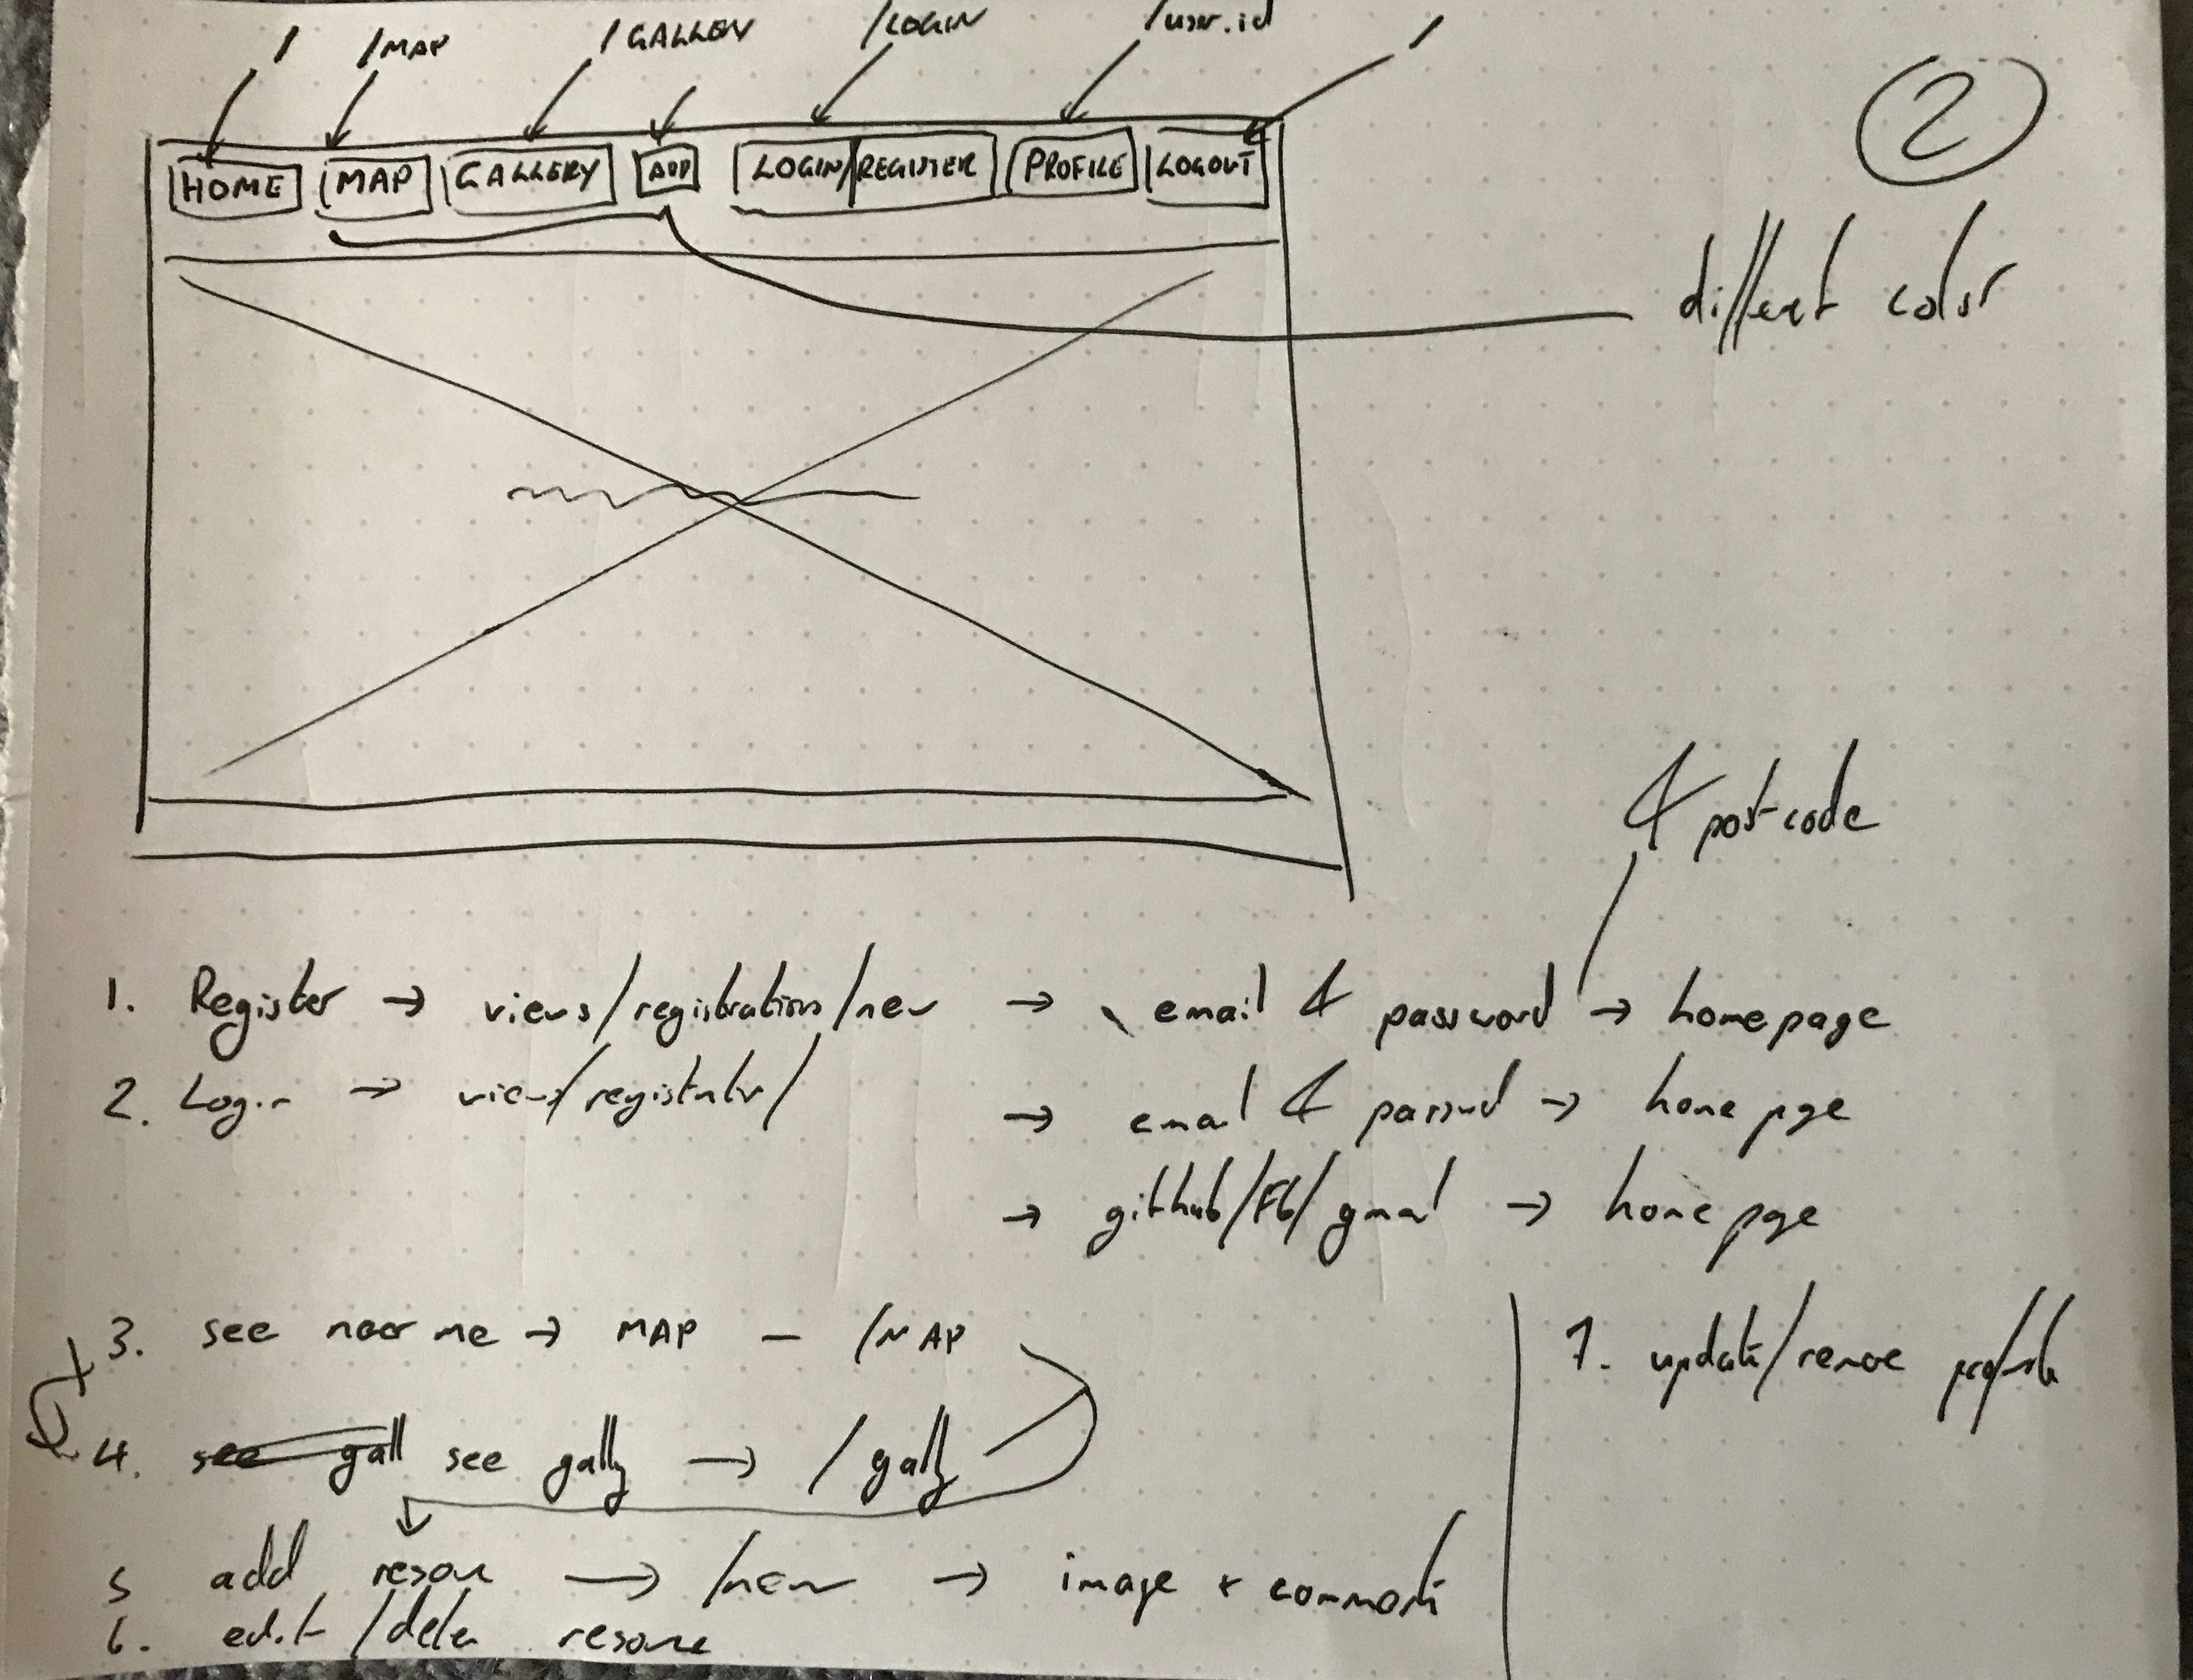 / /MAP /GALLERY /LOGIN /user.id /
2
HOME MAP GALLERY ADD LOGIN/REGISTER PROFILE LOGOUT
different color
& postcode
1. Register → views/registration/new → email & password → homepage
2. Login → view/registratr/ → email & passwd → home pge
→ github/Fb/gmal → home pge
3. see near me → MAP – /MAP
7. update/remove profile
4. see gall see gally → /gally
5 add resou → /new → image + comments
6. edit/dele resource